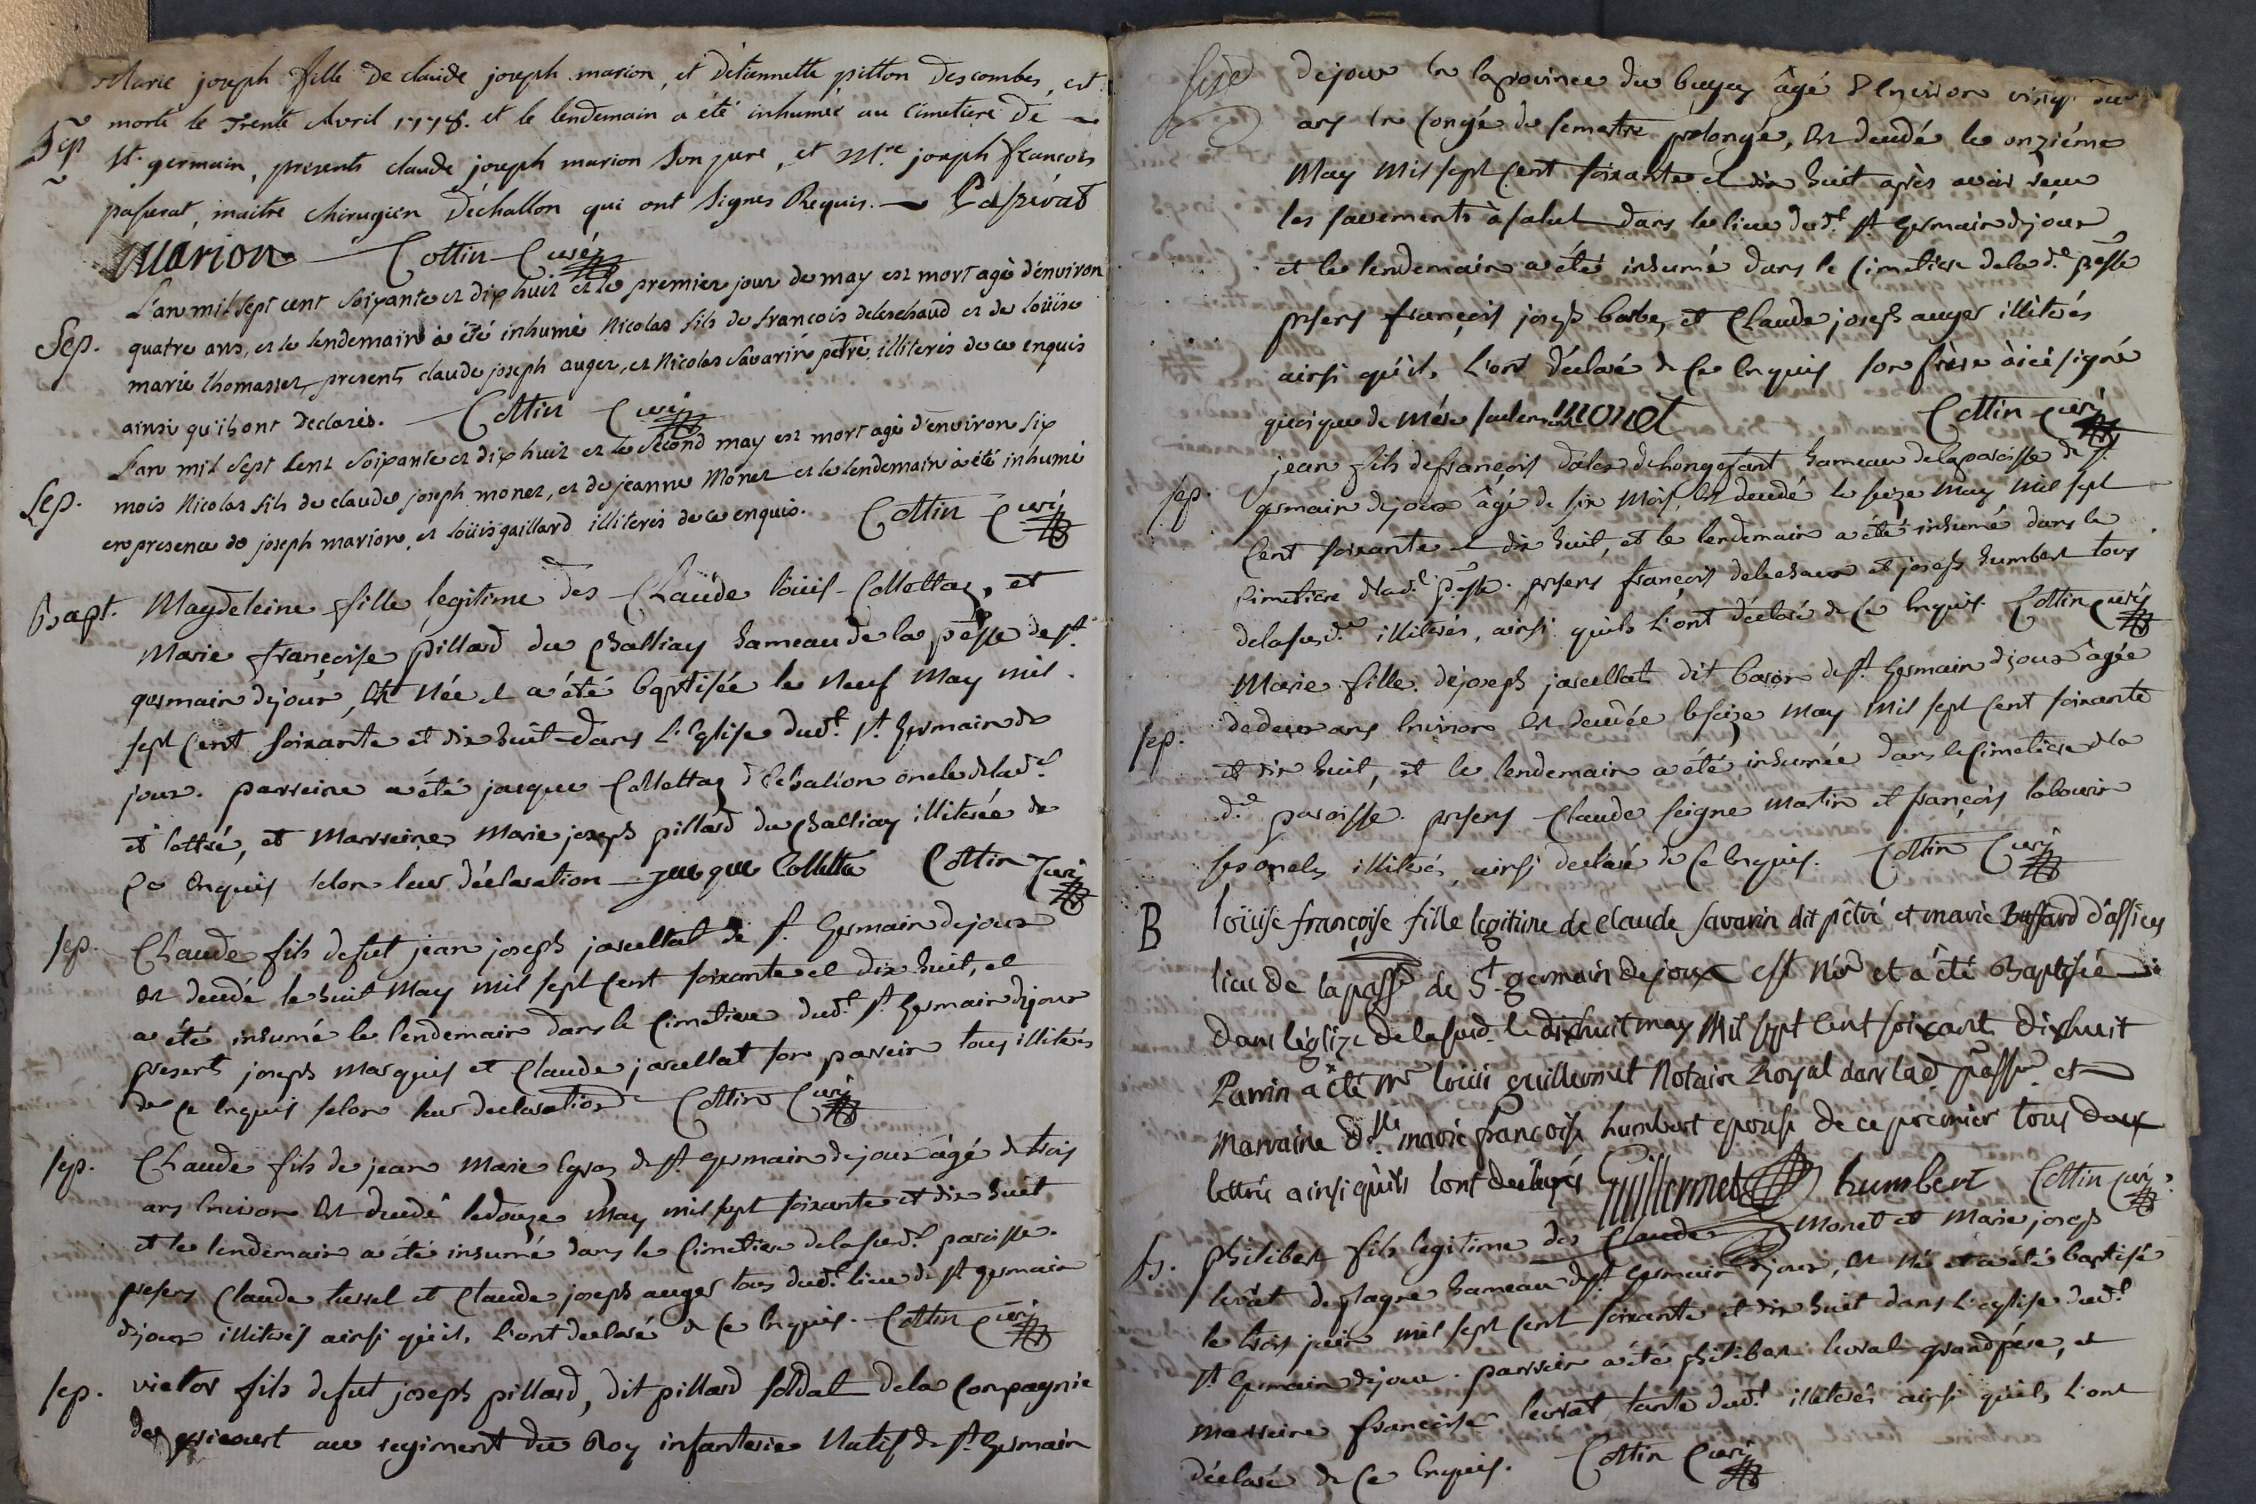 Marie joseph fille de claude joseph marion, et d'étiennette pitton des combes, est
morte le Trente Avril 1778. et le lendemain a été inhumée au Cimetiere de
Sep
St. germain, presents claude joseph marion son pere, et Mre. joseph francois
passerat, maitre chirugien d'échallon qui ont signés Requis. Passerat
Marion Cottin Curé
L'an mil sept cent soixante et dix huit et le premier jour de may est mort agé d'environ
Sep.
quatre ans, et le lendemain a été inhumé Nicolas fils de francois delechaud et de loüise
marie thomasset, presents claude joseph auger, et Nicolas Savarin petré, illiterés de ce enquis
ainsi qu'ils ont declarés. Cottin Curé
L'an mil sept cent soixante et dix huit et le second may est mort agé d'environ six
Sep.
mois Nicolas fils de claude joseph monet, et de jeanne Monet et le lendemain a été inhumé
en presence de joseph marion, et loüis gaillard illiterés de ce enquis. Cottin Curé
Bapt. Magdeleine fille legitime des Claude loüis Collettaz, et
Marie françoise pillard du Challiay hameau de la psse de st.
germain dejour, est Née et a été baptisée le Neuf May mil
sept Cent soixante et dix huit dans L'Eglise dud. st. Germain de
joux. parrein a été jacque Collettaz d'Echallon oncle de lad.
et lettré, et Marreine Marie joseph pillard du Challiay illiterée de
Ce Enquis selon leur déclaration jacque Colletta Cottin Curé
sep. Claude fils defut jean joseph jarcellat de st. Germain dejoux
est decedé le huit May mil sept cent soixante et dix huit, et
a été inhumé le lendemain dans le Cimetiere dud. st. Germain dejoux
presents joseph Marquis et Claude jarcellat son parrein tous illiterés
de Ce Enquis selon leur declaration Cottin Curé
sep. Claude fils de jean Marie Egraz de st. germain dejoux âgé de trois
ans Environ est decedé le douze May mil sept soixante et dix huit
et le lendemain a été inhumé dans le Cimetiere de la sud. paroisse.
presens Claude tissel et Claude joseph auger tous dud. lieu de st germain
dejoux illiterés ainsi qu'ils L'ont declaré de Ce Enquis. Cottin Curé
sep. victor fils defut joseph pillard, dit pillard soldat de la Compagnie
au regiment du Roy infanterie Natif de st. Germain
dejoux En la province du bugey âgé d'Environ vingt
ans En Congé de semestre prolongé, est decedé le onziéme
May mil sept Cent soixante et dix huit après avoir reçu
les sacements à salut dans le lieu dud. st germain dejoux
et le lendemain a été inhumé dans le Cimetiere de la d. psse
presens françois joseph barbe, et Claude joseph auger illiterés
ainsi qu'ils L'ont déclaré de Ce Enquis son frère à ici signé
quoique de mére seulement monet Cottin Curé
jean fils defrançois dalex de hongefont hameau de la paroisse de st.
sep.
germain dejoux âgé de six Mois, est decedé le seize May mil sept
Cent soixante et dix huit, et le lendemain a été inhumé dans le
Cimetiere de lad. psse. presens françois delechaux et joseph humbert tous
de la sud. illiterés, ainsi quils L'ont déclaré de Ce Enquis. Cottin Curé
Marie fille de joseph jarcellat dit baron de st. Germain dejoux âgée
sep.
de deux ans Environ est decedée le seize May mil sept Cent soixante
et dix huit, et le lendemain a été inhumée dans le Cimetiere de la
d. paroisse. presens Claude seigne martin et françois labourier
ses oncles illiterés, ainsi declaré de Ce Enquis. Cottin Curé
B Loüise françoise fille legitime de claude savarin dit pêtré et marie Buffard d'assieu
lieu de la passe de St germain de joux est Née et a été Baptisée
dans léglize de la sud. le dixhuit may mil sept cent soixant dixhuit
Parrin a été Mr loüis guillermet Notaire Royal dans lad. passe et
marraine dlle marie françoise humbert epouse de ce premier tous deux
lettrés ainsi qu'ils lont declarés Guillermet humbert Cottin Curé
B. philibert fils legitime des Claude Monet et Marie joseph
livrat de plagne hameau de st Germain dejoux, est Né et a été baptisé
le trois juin mil sept Cent soixante et dix huit dans L'eglise dud.
st Germain dejoux. parrein a été philibert livrat grandpére, et
marreine françoise livrat tante dud. illiterés ainsi quils L'ont
déclaré de Ce Enquis. Cottin Curé